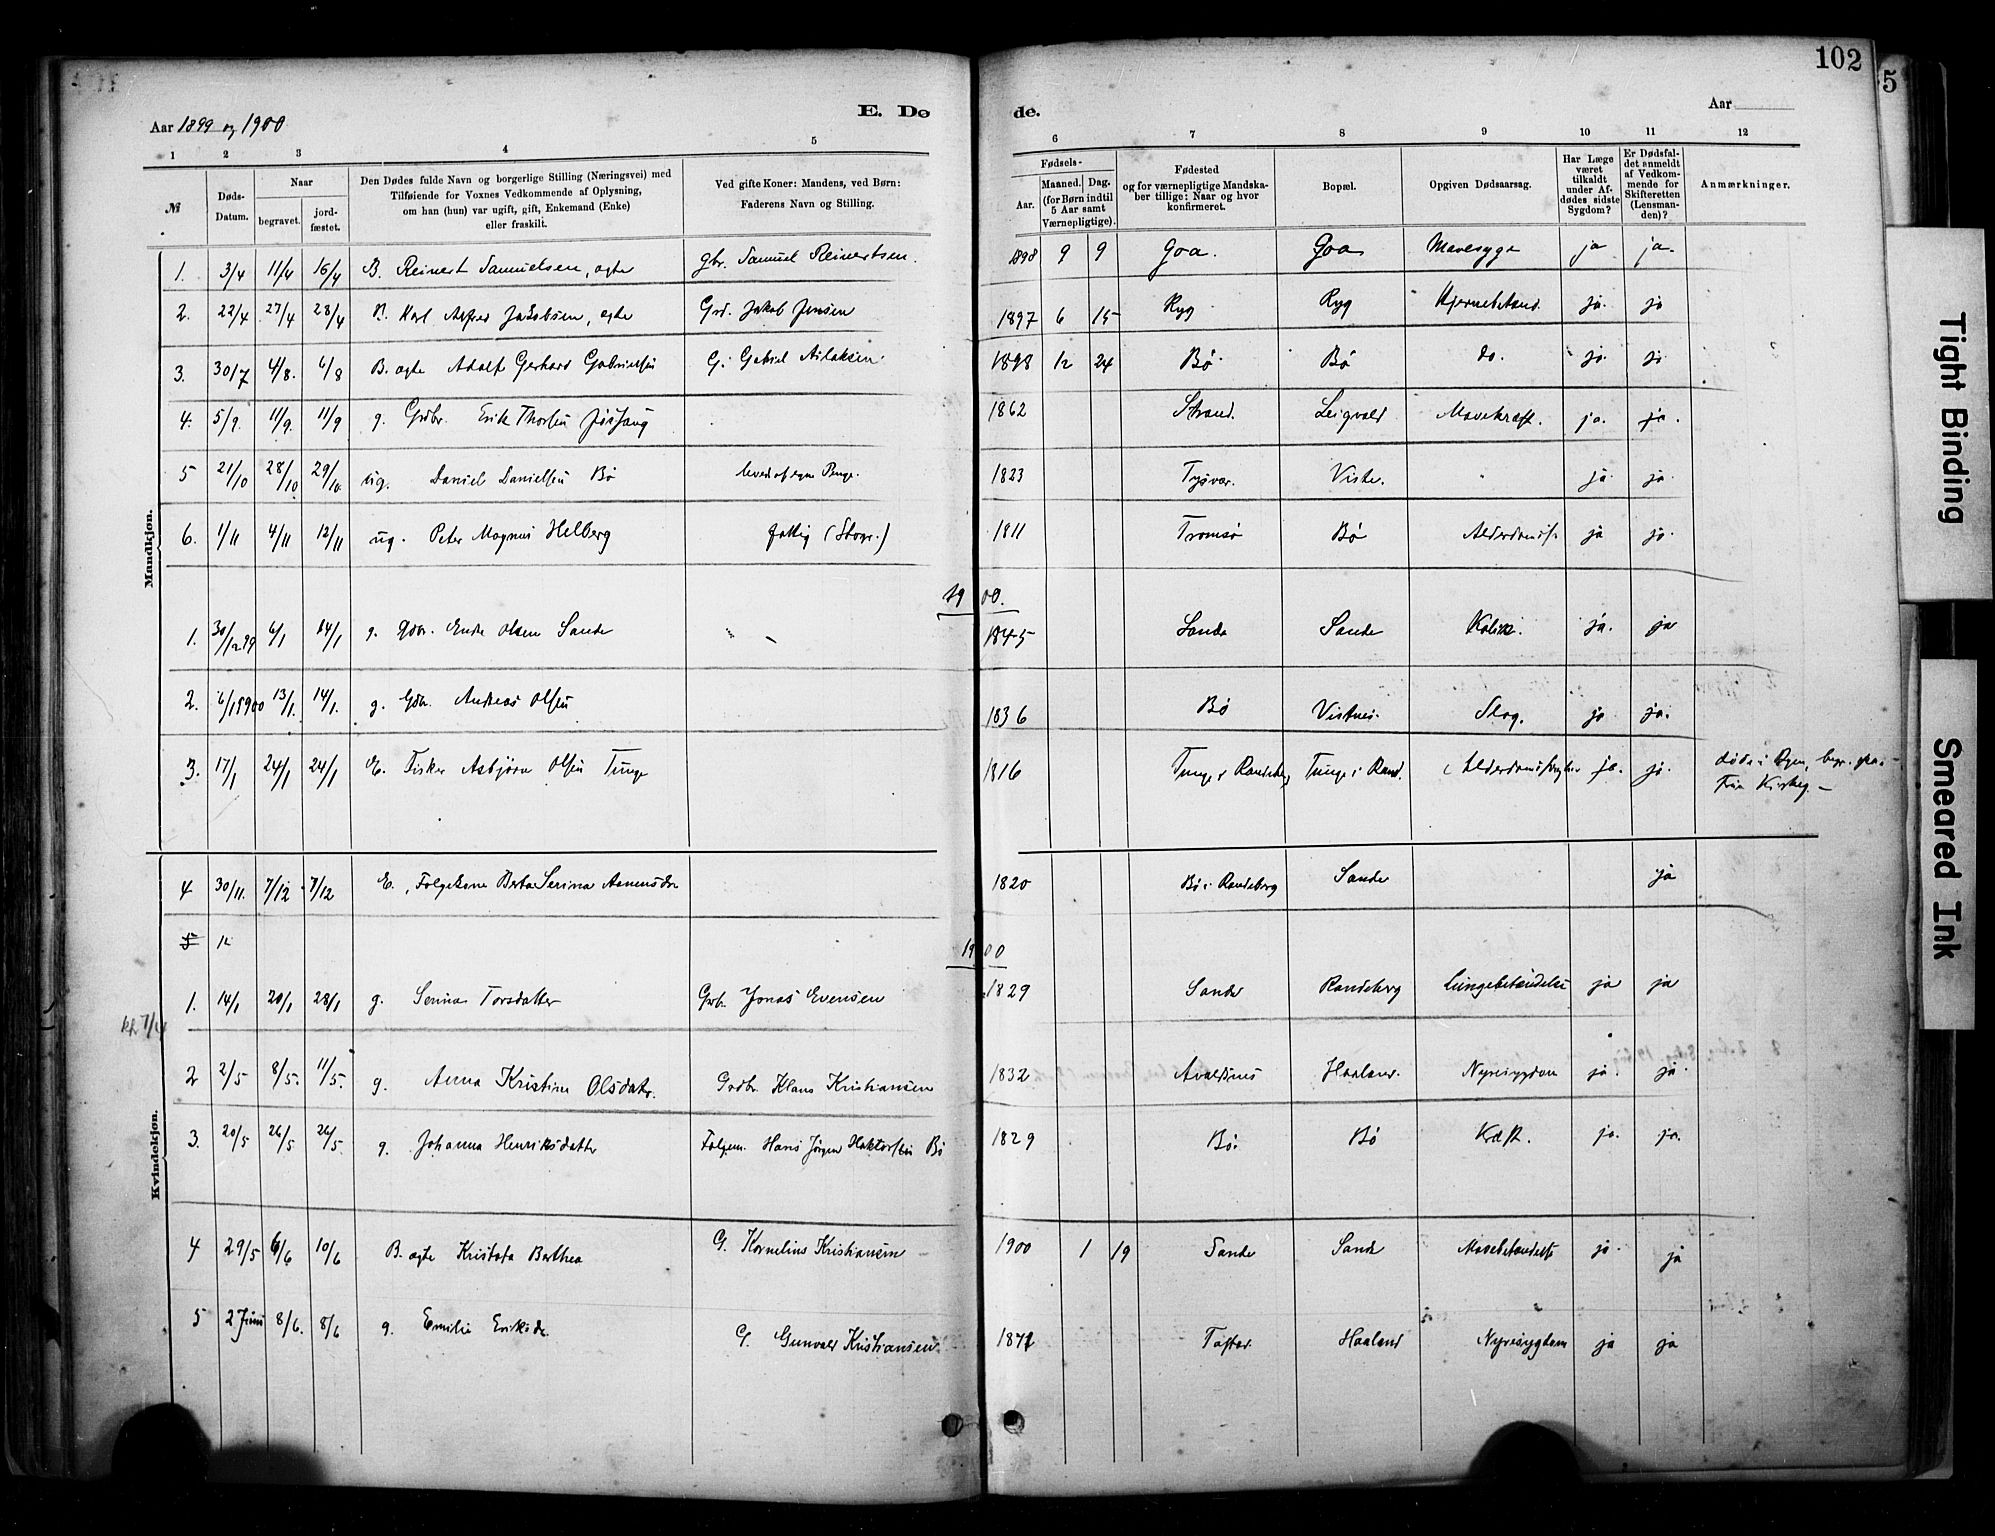 102
5
E. Dø
de.
Aar 1899 og 1900
Aar
1 2 3 4 5 6 7 8 9 10 11 12
№
Døds-Datum.
Naar
begravet.
jord-fæstet.
Den Dødes fulde Navn og borgerlige Stilling (Næringsvei) med
Tilføiende for Voxnes Vedkommende af Oplysning,
om han (hun) var ugift, gift, Enkemand (Enke)
eller fraskilt.
Ved gifte Koner: Mandens, ved Børn:
Faderens Navn og Stilling.
Fødsels-
Aar.
Maaned. Dag.
(for Børn indtil
5 Aar samt
Værnepligtige).
Fødested
og for værnepligtige Mandska-
ber tillige: Naar og hvor
konfirmeret.
Bopæl.
Opgiven Dødsaarsag.
Har Læge
været
tilkaldt
under Af-
dødes sidste
Sygdom?
Er Dødsfal-
det anmeldt
af Vedkom-
mende for
Skifteretten
(Lensman-
den)?
Anmærkninger.
Mandkjøn.
1. 3/4 11/4 16/4 B. Reinert Samuelsen, ægte gbr. Samuel Reinertsen. 1898 9 9 Goa. Goa Mavesyge ja ja.
2. 22/4 27/4 28/4 B. Karl Alfred Jakobsen, ægte Grd. Jakob Jensen 1897 6 15 Ryg Ryg Hjernebetænd. ja. ja
3. 30/7 4/8. 6/8 B. ægte Adolf Gerhard Gabrielsen G. Gabriel Aslaksen. 1898 12 24 Bø. Bø do. ja. ja
4. 5/9. 11/9. 11/9 g. Grdbr. Erik Thorsen 1862 Strand. Leigvold Mavekræft. ja. ja.
5 21/10 28/10 29/10. ug. Daniel Danielsen Bø levede af egne Penge. 1823 Tysvær. Viste. ja. ja.
6. 1/11 4/11 12/11 ug. Peter Magnus Helberg fattig 1811 Tromsø Bø ja ja.
1900.
1. 30/12 99 6/1 14/1 g. Gdbr. Endre Olsen Sande 1845 Sande Sande Kolik. ja. ja
2. 6/1 1900 13/1. 14/1. g. Gdbr. Andreas Olsen 1836 Bø Vistnes. Slag. ja ja.
3. 17/1 24/1 24/1 E. Fisker Asbjørn Olsen Tunge 1816 Tunge i Randeberg Tunge i Rand. ja. ja. døde i
Kvindekjøn.
4 30/11. 7/12. 7/12 E., Folgekone Berta Serina 1820 Bø i Randeberg Sande ja
5 12
1900
1. 14/1 20/1 28/1 g. Serina Torsdatter Grbr. Jonas Evensen 1829 Sande Randeberg Lungebetændelse ja ja
kl. 7/4
2 2/5 8/5. 11/5. g. Anna Kristine Olsdatr. Grdbr. Klaus Kristiansen 1832 Avaldsnes Haaland. Nyresygdom ja. ja.
3. 20/5 26/5 26/5. g. Johanna Henriksdatter Folgem. Hans Jørgen Bø 1829 Bø. Bø Kræft. ja. ja.
4 29/5 6/6 10/6 B. ægte Kristofa Berthea G. Kornelius Kristiansen 1900 1 19 Sande Sande Mavebetændelse ja. ja
5 2 Juni 8/6. 8/6 g. Emilie Eriksdr. G. Gunvald Kristiansen. 1872 Tastad. Haaland Nyresygdom ja ja
Tight Binding
Smeared Ink